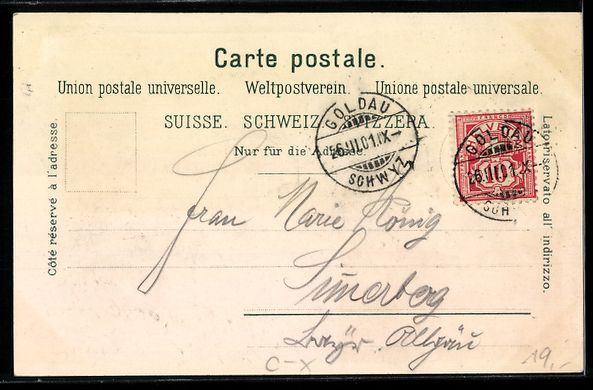 Carte postale.
Union postale universelle. Weltpostverein. Unione postale universale.
SUISSE. SCHWEIZ. SVIZZERA.
Nur für die Adresse.
Côté réservé à l'adresse.
Lato riservato all' indirizzo.
GOLDAU
26.III.01.IX-
SCHWYZ
GOLDAU
26.III.01.X-
SCH
Frau Marie König
Simerberg
bayr. Allgäu
C-X
19,-